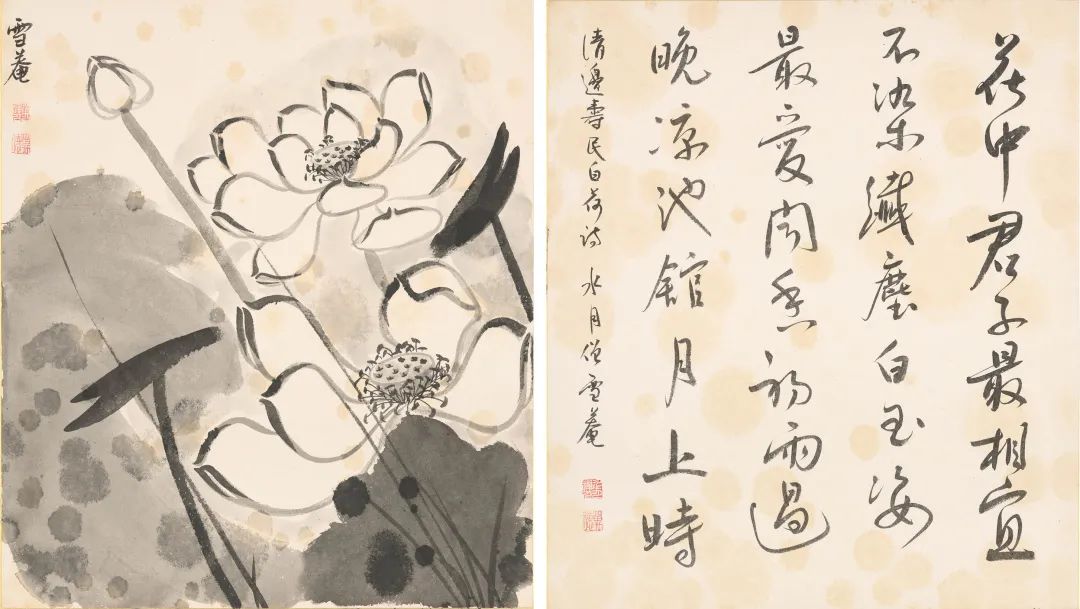 花中君子最相宜
不染纖塵白玉姿
最愛聞香初雨過
晚涼池館月上時
清邊壽民白荷詩 水月僧雪菴
雪菴